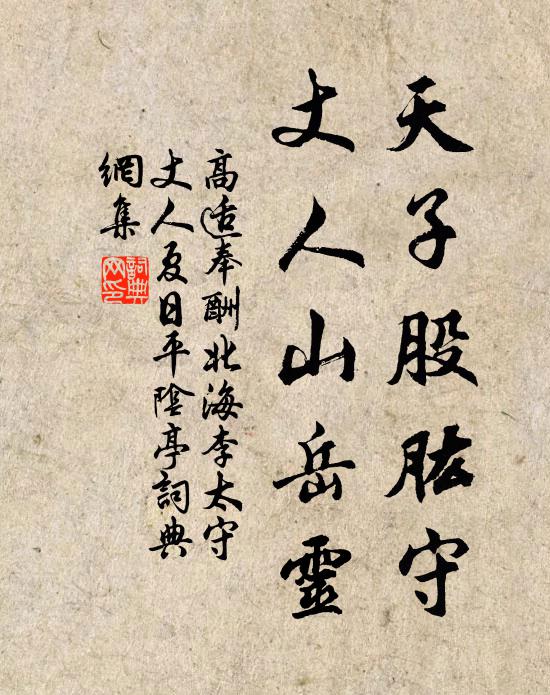 天子股肱守
丈人山岳靈
高适奉酬北海李太守
丈人夏日平陰亭詞典
網集
詞典網印